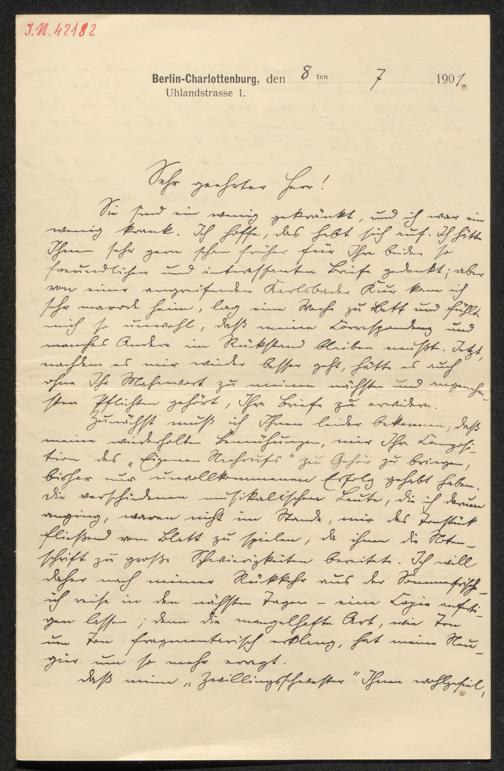 J.N. 42182
Berlin-Charlottenburg, den 8 ten 7 1901.
Uhlandstrasse 1.
Sehr geehrter Herr!
Sie sind ein wenig gekränkt, und ich war ein
wenig krank. Ich hoffe, das hebt sich auf. Ich hätte
Ihnen sehr gern schon früher für Ihre beiden so
freundlichen und interessanten Briefe gedankt; aber
von einer angreifenden Karlsbader Kur kam ich
sehr marode heim, lag eine Woche zu Bett und fühlte
mich so unwohl, daß meine Correspondenz und
manches Andere im Rückstand bleiben mußte. Jetzt,
nachdem es mir wieder besser geht, hätte es auch
ohne Ihr Mahnwort zu meinen nächsten und angeneh-
sten Pflichten gehört, Ihre Briefe zu erwidern.
Zunächst muß ich Ihnen leider bekennen, daß
meine wiederholten Bemühungen, mir Ihre Composi-
tion des „Eigenen Nachrufs" zu Gehör zu bringen,
bisher nur unvollkommenen Erfolg gehabt haben.
Die verschiedenen musikalischen Leute, die ich darum
anging, waren nicht im Stande, mir das Tonstück
fließend vom Blatt zu spielen, da ihnen die Noten-
schrift zu große Schwierigkeiten bereitete. Ich will
daher nach meiner Rückkehr aus der Sommerfrische –
ich reise in den nächsten Tagen – eine Copie anferti-
gen lassen; denn die mangelhafte Art, wie Ton
um Ton fragmentarisch erklang, hat meine Neu-
gier um so mehr erregt.
Daß meine „Zwillingsschwester" Ihnen wohlgefiel,